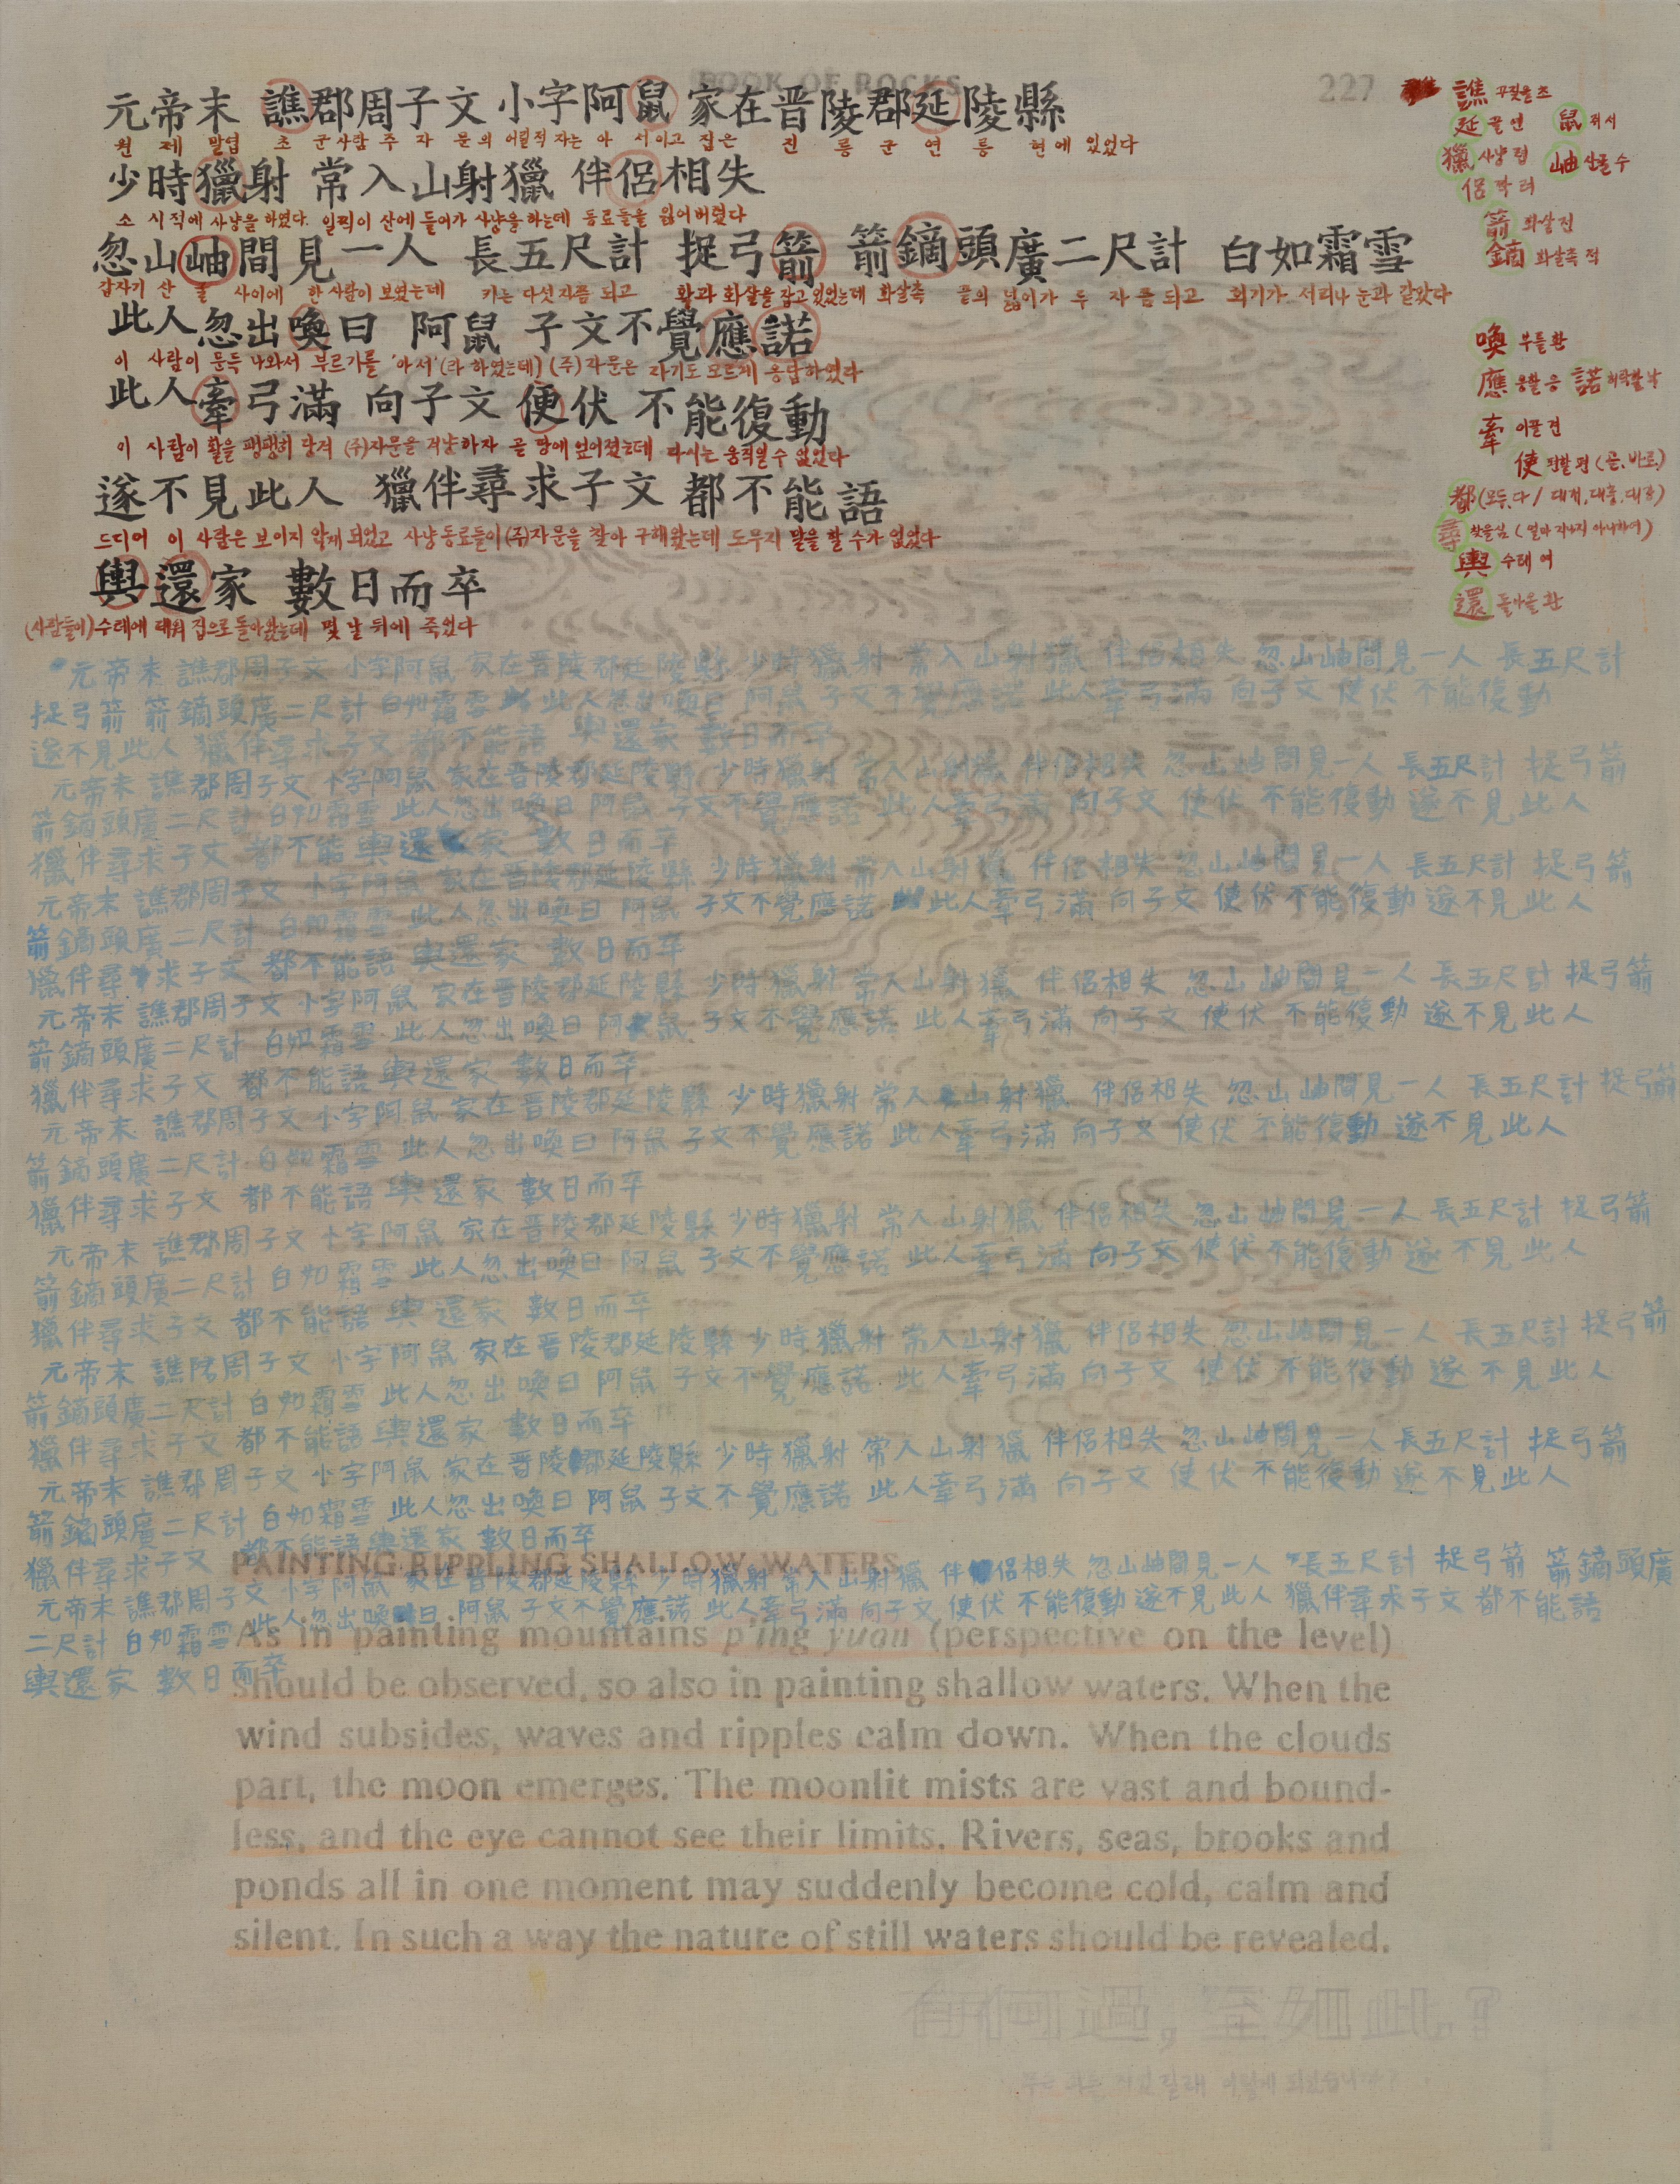 BOOK OF ROCKS 227
元帝末 譙郡周子文 小字阿鼠 家在晋陵郡延陵縣
원 제 말엽 초 군사람 주 자 문의 어릴적 자는 아 서이고 집은 진 릉 군 연 릉 현에 있었다
少時獵射 常入山射獵 伴侶相失
소 시적에 사냥을 하였다. 일찍이 산에 들어가 사냥을 하는데 동료들을 잃어버렸다
忽山岫間見一人 長五尺計 捉弓箭 箭鏑頭廣二尺計 白如霜雪
갑자기 산 굴 사이에 한 사람이 보였는데 키는 다섯 자쯤 되고 활과 화살을 잡고 있었는데 화살촉 끝의 넓이가 두 자 쯤 되고 희기가 서리나 눈과 같았다
此人忽出喚曰 阿鼠 子文不覺應諾
이 사람이 문득 나와서 부르기를 '아서'(라 하였는데) (주)자문은 자기도 모르게 응답하였다
此人牽弓滿 向子文 便伏 不能復動
이 사람이 활을 팽팽히 당겨 (주)자문을 겨냥하자 곧 땅에 엎어졌는데 다시는 움직일 수 없었다
遂不見此人 獵伴尋求子文 都不能語
드디어 이 사람은 보이지 않게 되었고 사냥 동료들이 (주)자문을 찾아 구해왔는데 도무지 말을 할 수가 없었다
輿還家 數日而卒
(사람들이) 수레에 태워 집으로 돌아왔는데 몇 날 뒤에 죽었다
譙 꾸짖을 초
延 끌 연 鼠 쥐 서
獵 사냥 렵 岫 산굴 수
侶 짝 려
箭 화살 전
鏑 화살촉 적
喚 부를 환
應 응할 응 諾 허락할 낙
牽 이끌 견
便 편할 편 (곧, 바로)
都 (모두, 다 / 대저, 대충, 대강)
尋 찾을 심 (얼마 지나지 아니하여)
輿 수레 여
還 돌아올 환
元帝末 譙郡周子文 小字阿鼠 家在晋陵郡延陵縣 少時獵射 常入山射獵 伴侶相失 忽山岫間見一人 長五尺計
捉弓箭 箭鏑頭廣二尺計 白如霜雪 此人忽出喚曰 阿鼠 子文不覺應諾 此人牽弓滿 向子文 便伏 不能復動
遂不見此人 獵伴尋求子文 都不能語 輿還家 數日而卒
元帝末 譙郡周子文 小字阿鼠 家在晋陵郡延陵縣 少時獵射 常入山射獵 伴侶相失 忽山岫間見一人 長五尺計 捉弓箭
箭鏑頭廣二尺計 白如霜雪 此人忽出喚曰 阿鼠 子文不覺應諾 此人牽弓滿 向子文 便伏 不能復動 遂不見此人
獵伴尋求子文 都不能 輿還 家 數日而卒
元帝末 譙郡周子文 小字阿鼠 家在晋陵郡延陵縣 少時獵射 常入山射獵 伴侶相失 忽山岫間見一人 長五尺計 捉弓箭
箭鏑頭廣二尺計 白如霜雪 此人忽出喚曰 阿鼠 子文不覺應諾 此人牽弓滿 向子文 便伏 不能復動 遂不見此人
獵伴尋求子文 都不能語 輿還家 數日而卒
元帝末 譙郡周子文 小字阿鼠 家在晋陵郡延陵縣 少時獵射 常入山射獵 伴侶相失 忽山岫間見一人 長五尺計 捉弓箭
箭鏑頭廣二尺計 白如霜雪 此人忽出喚曰 阿鼠 子文不覺應諾 此人牽弓滿 向子文 便伏 不能復動 遂不見此人
獵伴尋求子文 都不能語 輿還家 數日而卒
元帝末 譙郡周子文 小字阿鼠 家在晋陵郡延陵縣 少時獵射 常入山射獵 伴侶相失 忽山岫間見一人 長五尺計 捉弓箭
箭鏑頭廣二尺計 白如霜雪 此人忽出喚曰 阿鼠 子文不覺應諾 此人牽弓滿 向子文 便伏 不能復動 遂不見此人
獵伴尋求子文 都不能語 輿還家 數日而卒
元帝末 譙郡周子文 小字阿鼠 家在晋陵郡延陵縣 少時獵射 常入山射獵 伴侶相失 忽山岫間見一人 長五尺計 捉弓箭
箭鏑頭廣二尺計 白如霜雪 此人忽出喚曰 阿鼠 子文不覺應諾 此人牽弓滿 向子文 便伏 不能復動 遂不見此人
獵伴尋求子文 都不能語 輿還家 數日而卒
元帝末 譙 周子文 小字阿鼠 家在晋陵郡延陵縣 少時獵射 常入山射獵 伴侶相失 忽山岫間見一人 長五尺計 捉弓箭
箭鏑頭廣二尺計 白如霜雪 此人忽出喚曰 阿鼠 子文不覺應諾 此人牽弓滿 向子文 便伏 不能復動 遂不見此人
獵伴尋求子文 都不能語 輿還家 數日而卒
元帝末 譙郡周子文 小字阿鼠 家在晋陵郡延陵縣 少時獵射 常入山射獵 伴侶相失 忽山岫間見一人 長五尺計 捉弓箭
箭鏑頭廣二尺計 白如霜雪 此人忽出喚曰 阿鼠 子文不覺應諾 此人牽弓滿 向子文 便伏 不能復動 遂不見此人
獵伴尋求子文 都不能語 輿還家 數日而卒
元帝末 譙郡周子文 小字阿鼠 家在晋陵郡延陵縣 少時獵射 常入山射獵 伴侶相失 忽山岫間見一人 長五尺計 捉弓箭 箭鏑頭廣
二尺計 白如霜雪 此人忽出喚曰 阿鼠 子文不覺應諾 此人牽弓滿 向子文 便伏 不能復動 遂不見此人 獵伴尋求子文 都不能語
輿還家 數日而卒
PAINTING RIPPLING SHALLOW WATERS
As in painting mountains p'ing yuan (perspective on the level)
should be observed, so also in painting shallow waters. When the
wind subsides, waves and ripples calm down. When the clouds
part, the moon emerges. The moonlit mists are vast and bound-
less, and the eye cannot see their limits. Rivers, seas, brooks and
ponds all in one moment may suddenly become cold, calm and
silent. In such a way the nature of still waters should be revealed.
有何過, 至如此?